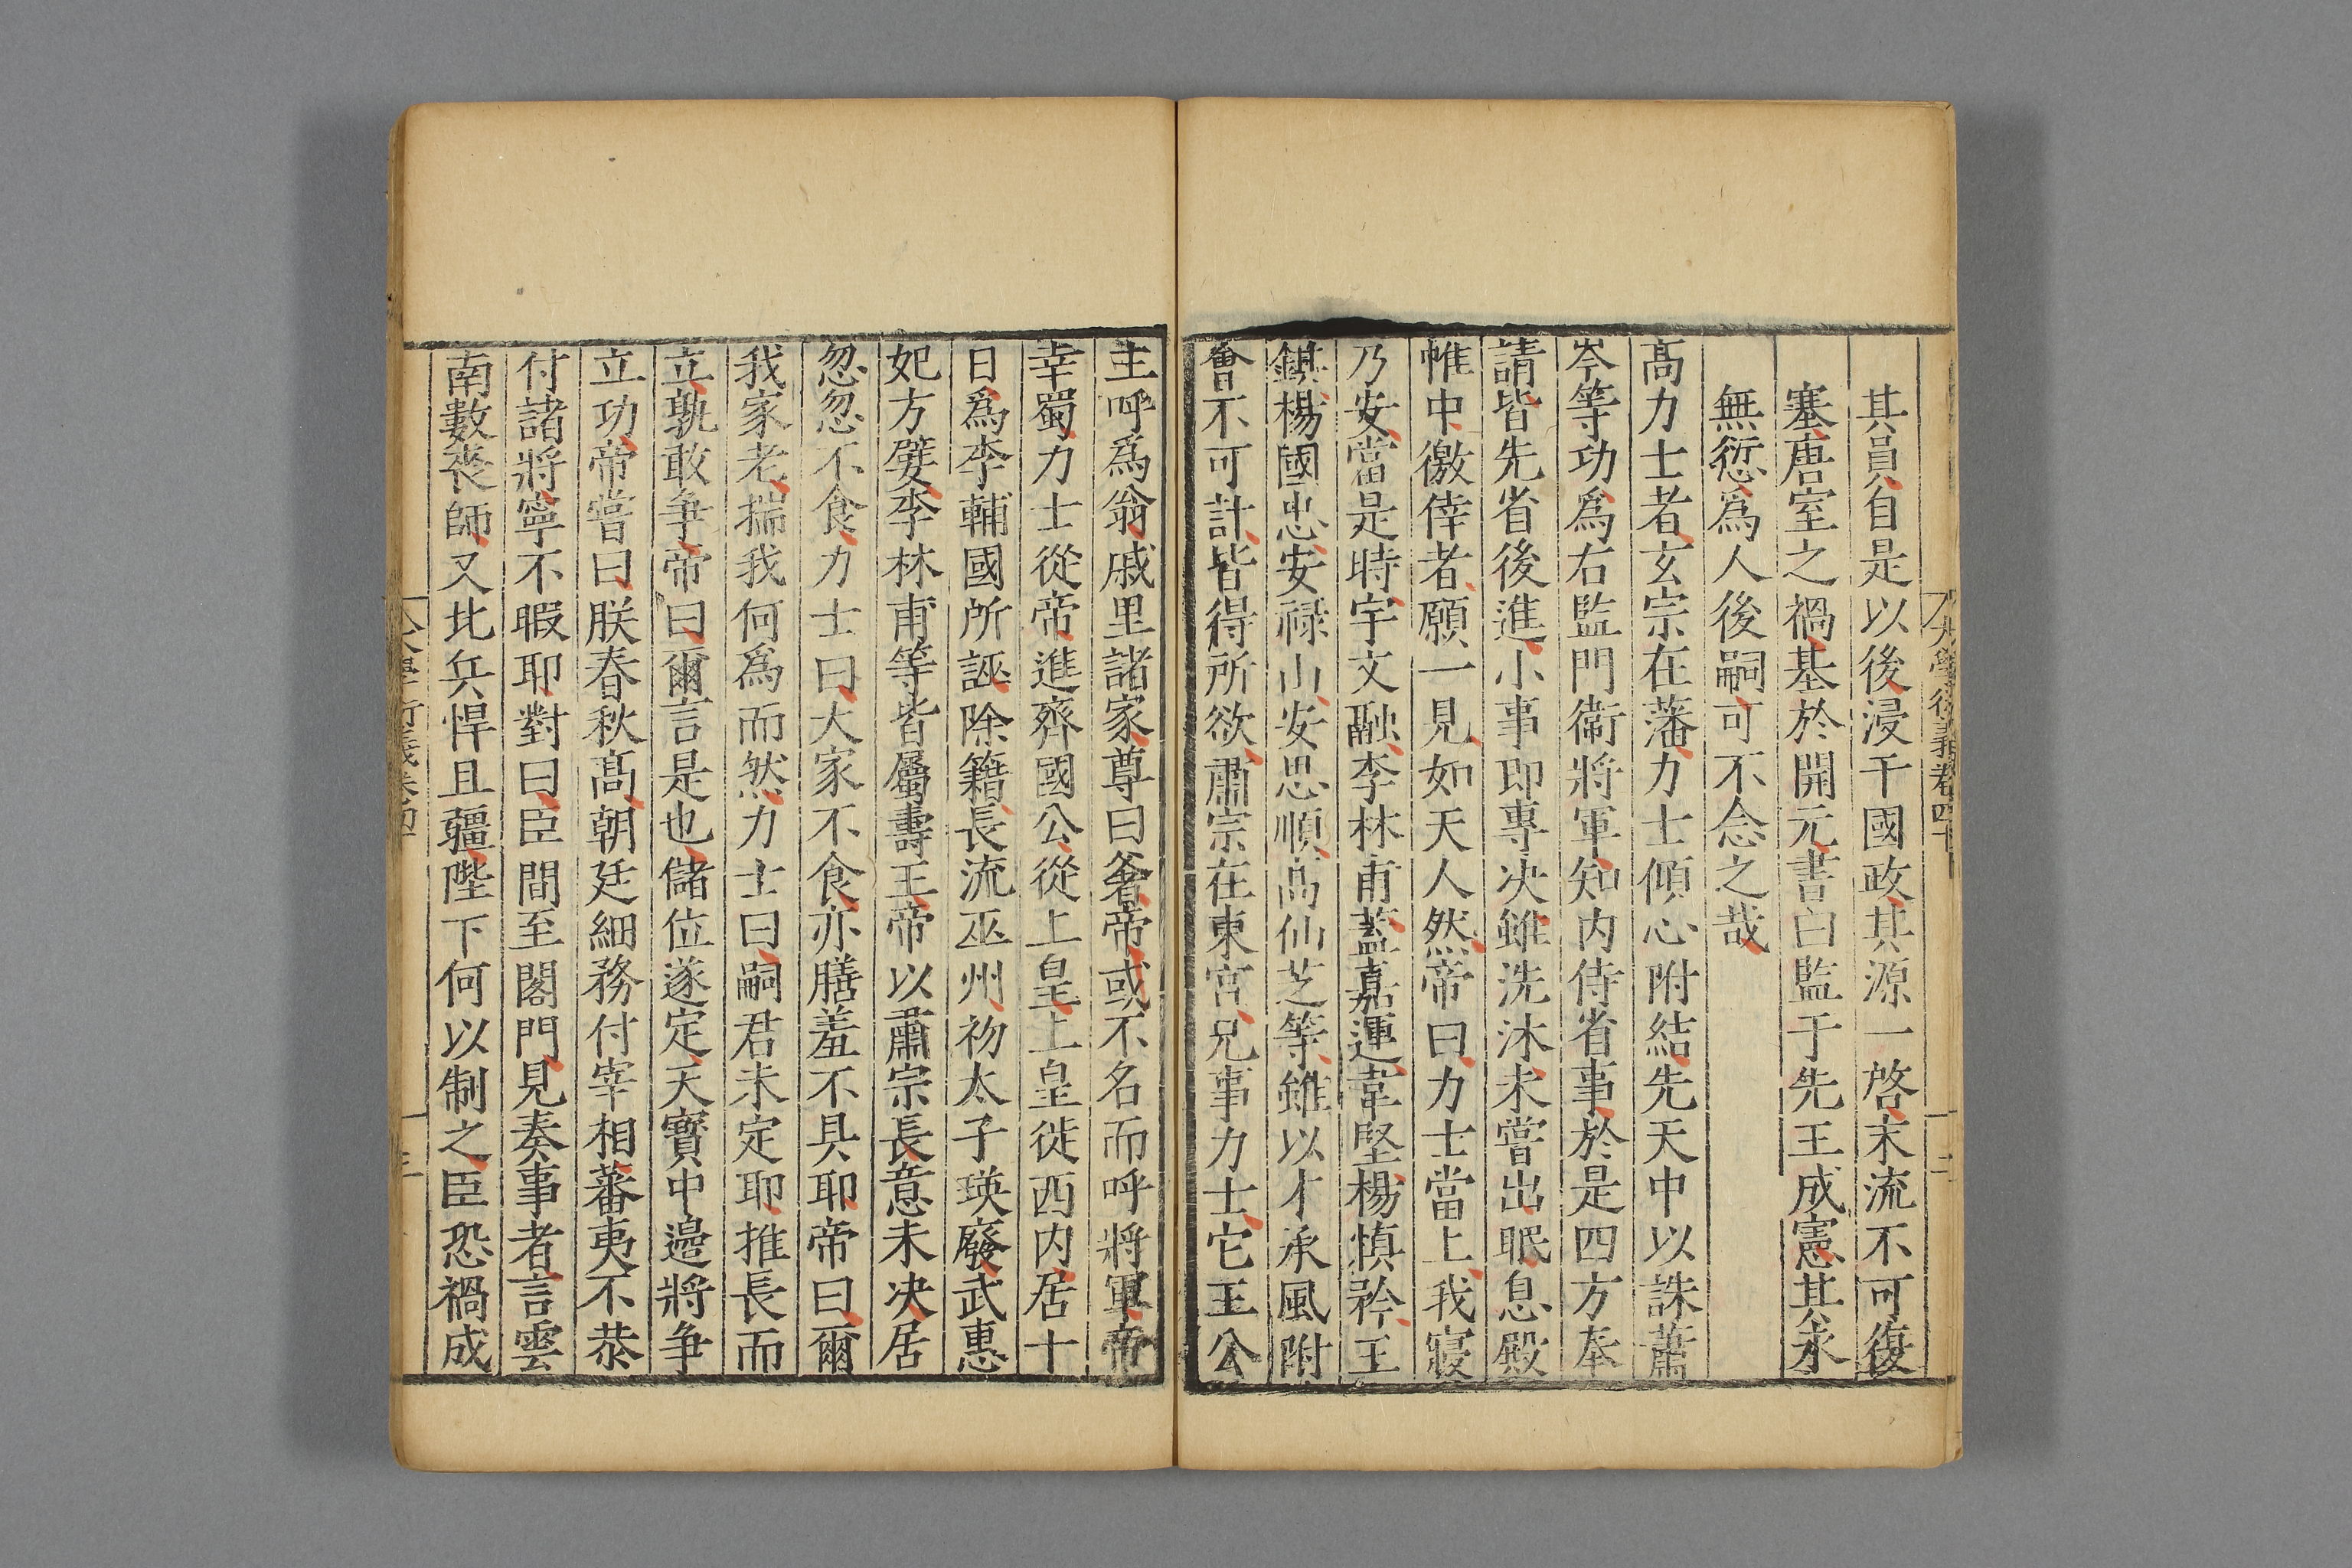 大學衍義卷四十
二
其員自是以後浸干國政其源一啓末流不可復
塞唐室之禍基於開元書曰監于先王成憲其永
無愆爲人後嗣可不念之哉
高力士者玄宗在藩力士傾心附結先天中以誅蕭
岑等功爲右監門衞將軍知内侍省事於是四方奉
請皆先省後進小事即專决雖洗沐未嘗出眠息殿
帷中徼倖者願一見如天人然帝曰力士當上我寢
乃安當是時宇文融李林甫蓋嘉運韋堅楊慎矜王
鉷楊國忠安禄山安思順高仙芝等雖以才承風附
會不可計皆得所欲肅宗在東宫兄事力士它王公
主呼爲翁戚里諸家尊曰爹帝或不名而呼將軍帝
幸蜀力士從帝進齊國公從上皇上皇徙西内居十
日爲李輔國所誣除籍長流巫州初太子瑛廢武惠
妃方嬖李林甫等皆屬壽王帝以肅宗長意未决居
忽忽不食力士曰大家不食亦膳羞不具耶帝曰爾
我家老揣我何爲而然力士曰嗣君未定耶推長而
立孰敢爭帝曰爾言是也儲位遂定天寳中邊將爭
立功帝嘗曰朕春秋高朝廷細務付宰相蕃夷不恭
付諸將寧不暇耶對曰臣間至閤門見奏事者言雲
南數喪師又北兵悍且彊陛下何以制之臣恐禍成
大學衍義卷四十
三